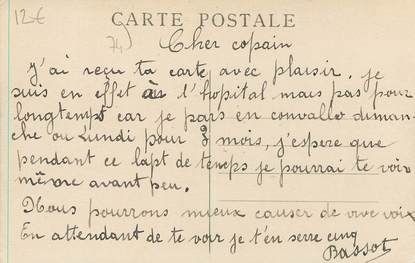 12€
CARTE POSTALE
74)
Cher copain
J'ai reçu ta carte avec plaisir, je
suis en effet à l'hopital mais pas pour
longtemps car je pars en convallo diman-
che ou Lundi pour 2 mois, j'espere que
pendant ce lapt de temps je pourrai te voir
même avant peu.
Nous pourrons mieux causer de vive voix
En attendant de te voir je t'en serre cinq
Bassot